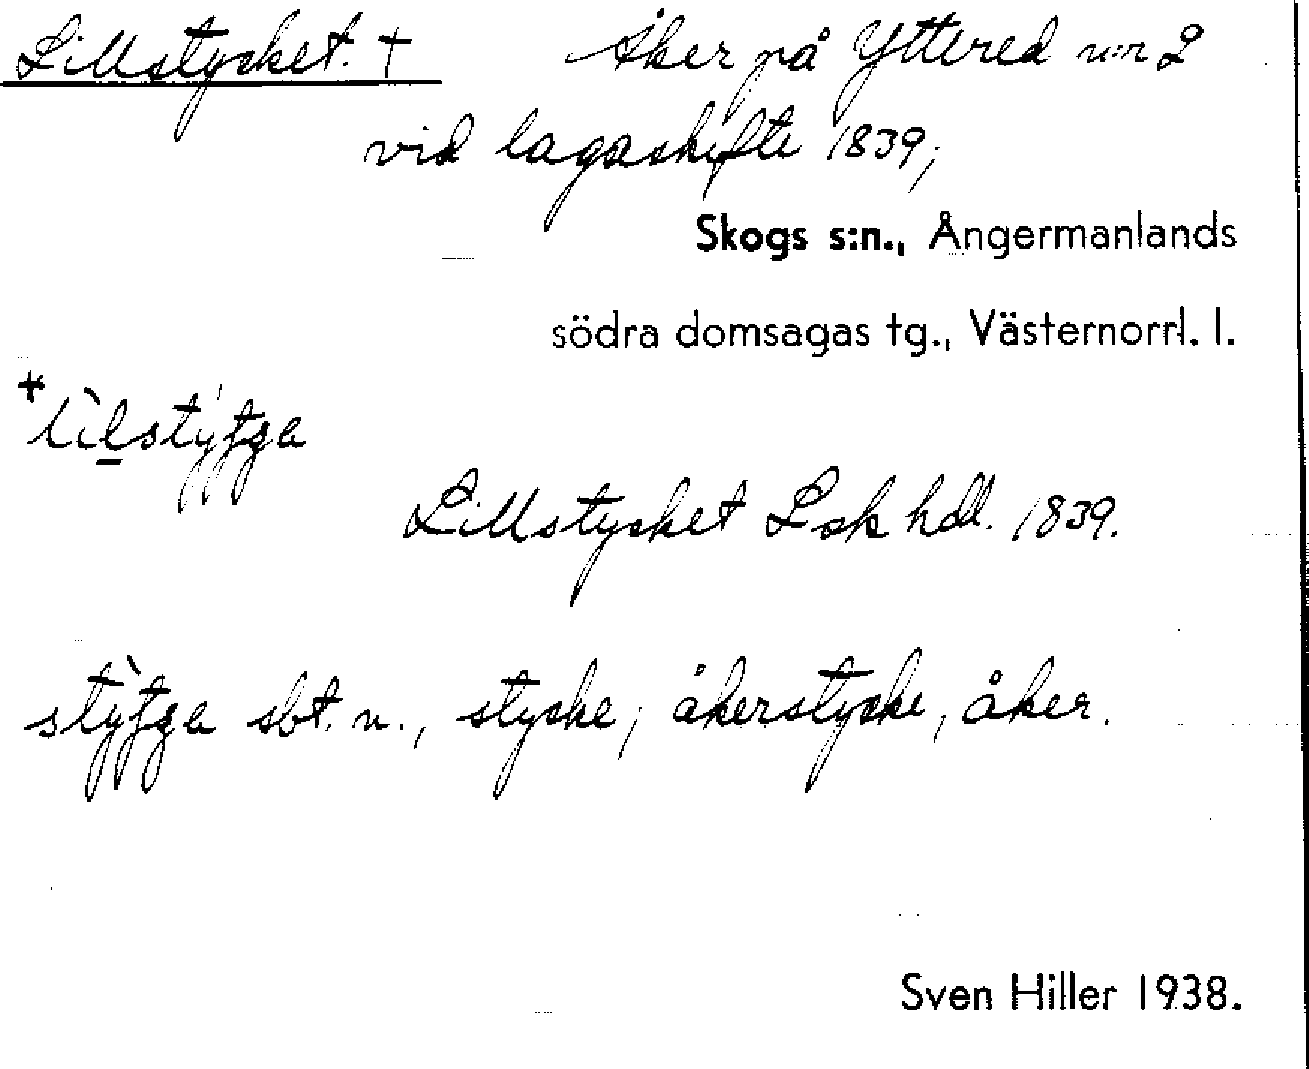 Lillstycket. † Åker på Yttered n:r 2
vid lagaskifte 1839;
Skogs s:n., Ångermanlands
södra domsagas tg., Västernorrl. l.
Lillstycket Lsk hdl. 1839.
sbt. n., stycke; åkerstycke, åker.
Sven Hiller 1938.